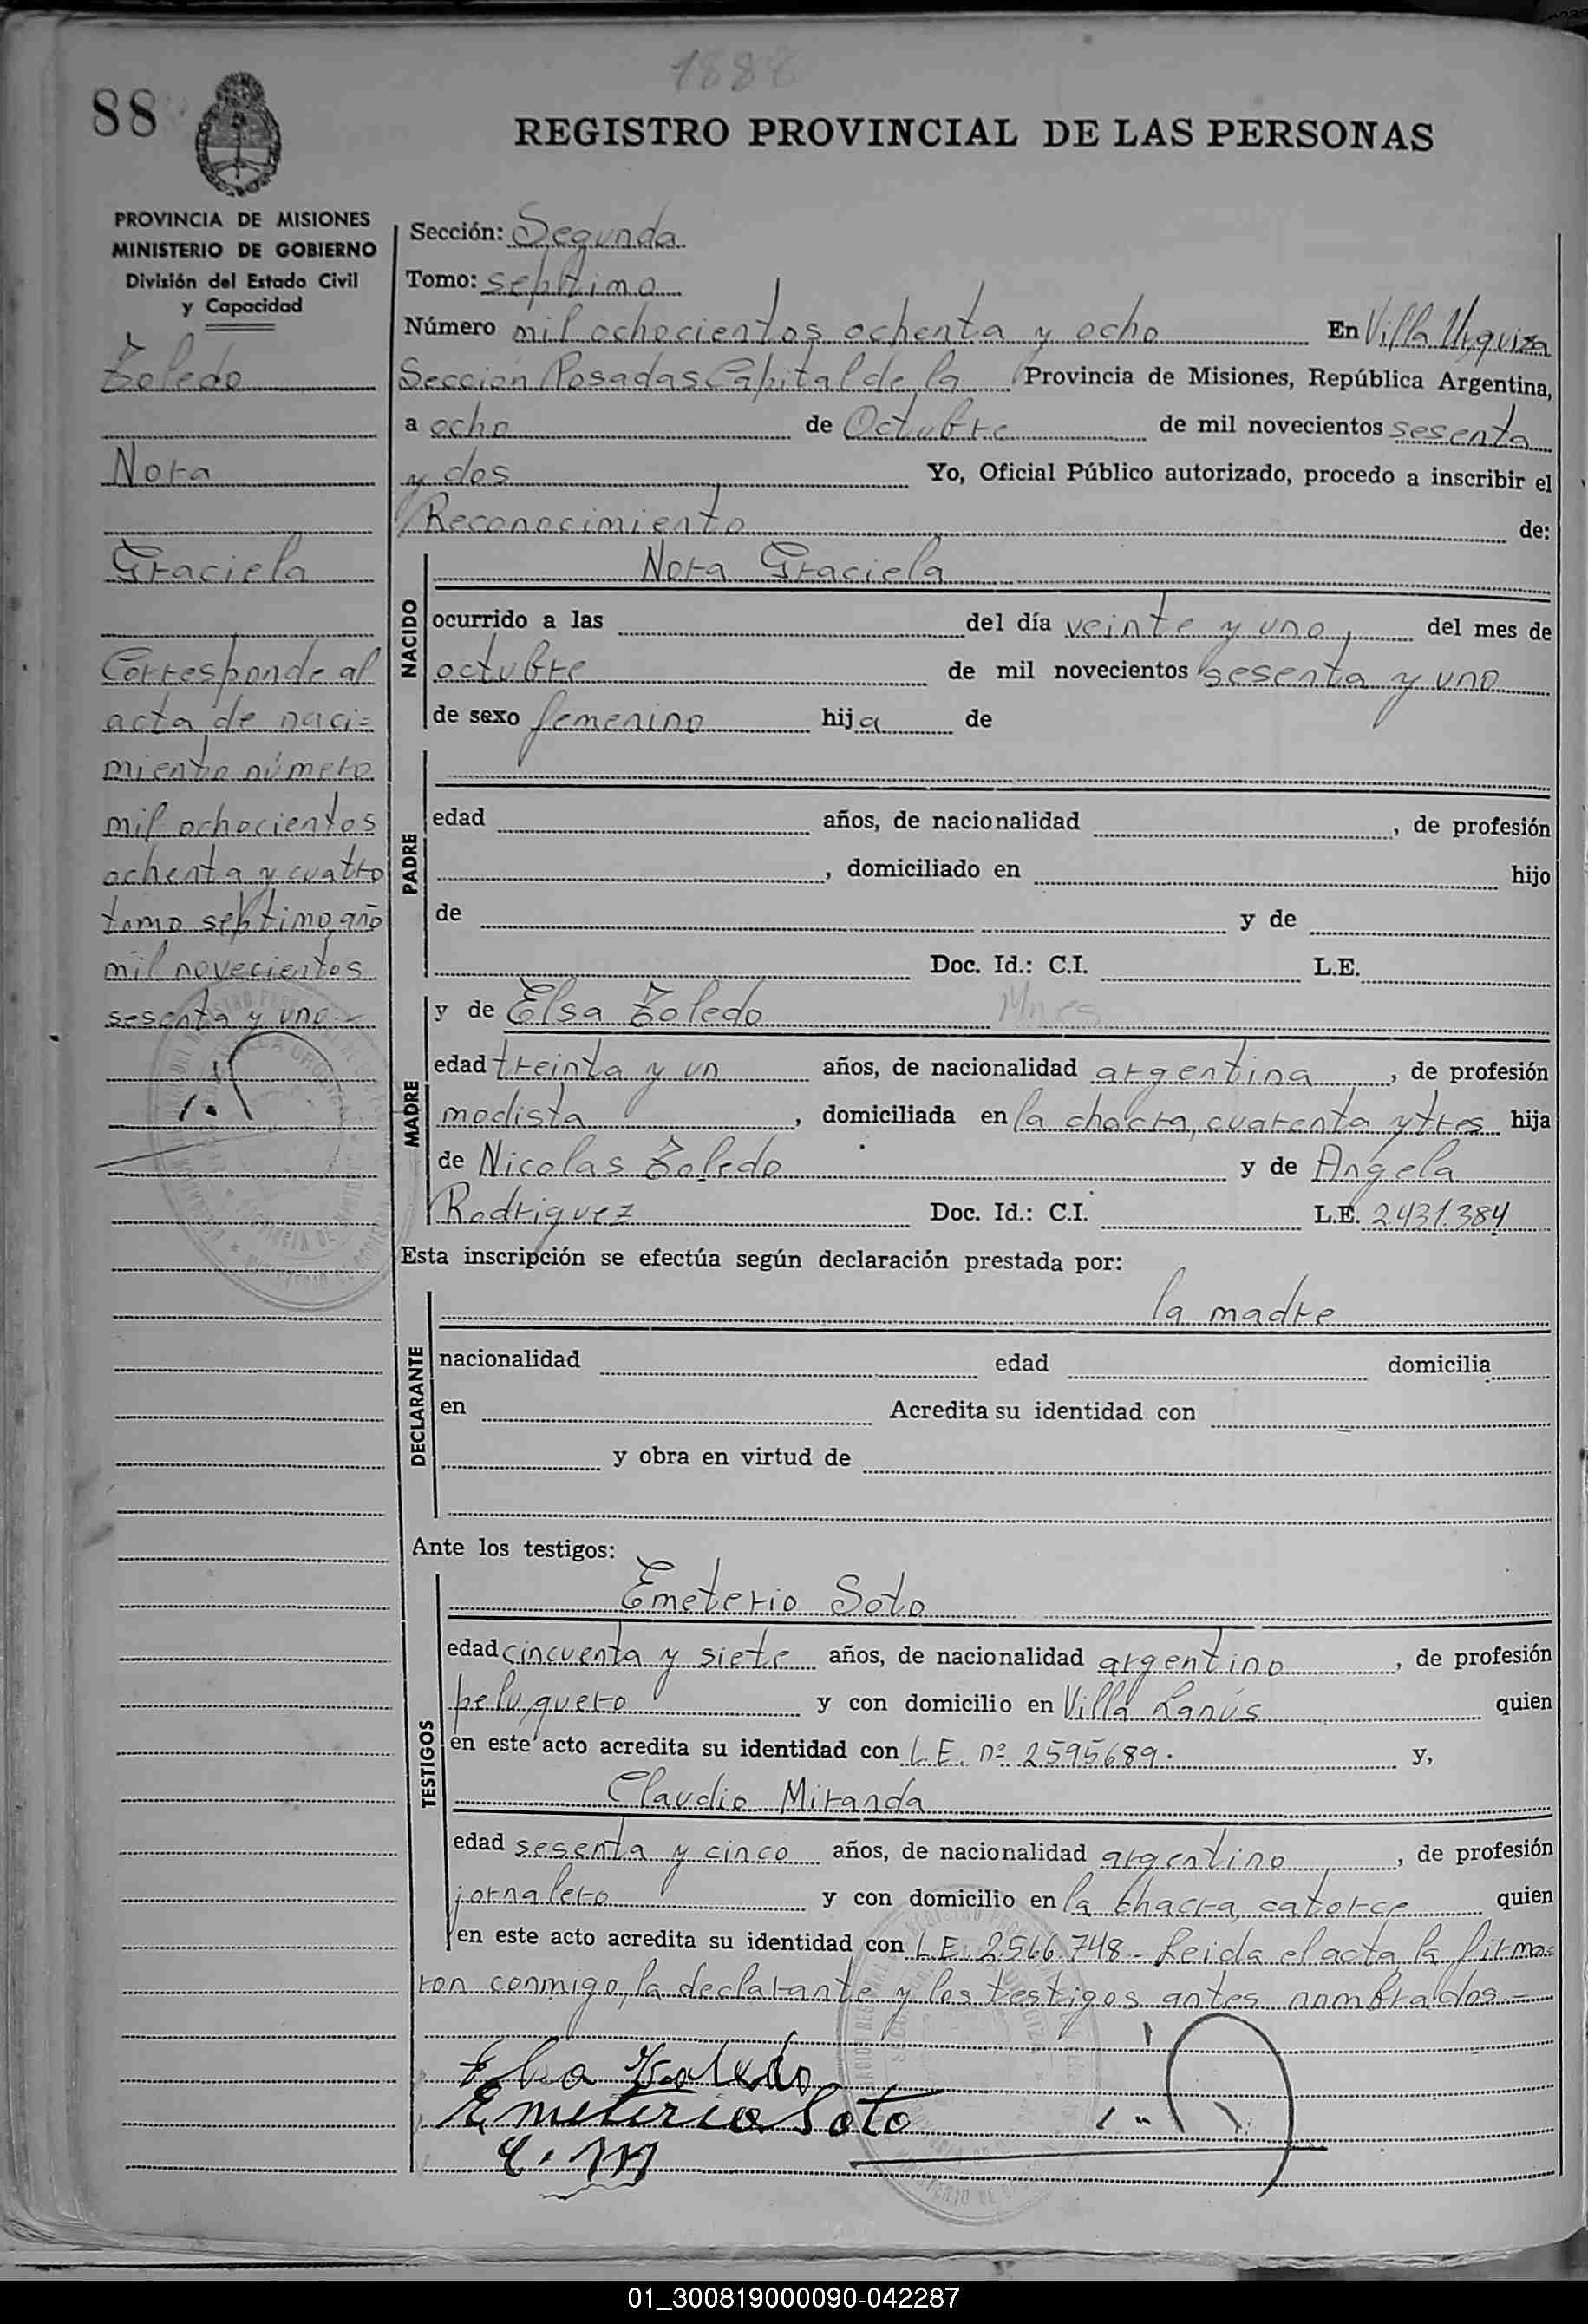 1888
88
REGISTRO PROVINCIAL DE LAS PERSONAS
PROVINCIA DE MISIONES
MINISTERIO DE GOBIERNO
División del Estado Civil
y Capacidad
Toledo
Nora
Graciela
Corresponde al
acta de naci=
miento número
mil ochocientos
ochenta y cuatro
tomo septimo, año
mil novecientos
sesenta y uno.-
Sección: Segunda
Tomo: septimo
Número mil ochocientos ochenta y ocho En Villa Urquiza
Sección Posadas Capital de la Provincia de Misiones, República Argentina,
a ocho de Octubre de mil novecientos sesenta
y dos Yo, Oficial Público autorizado, procedo a inscribir el
Reconocimiento de:
NACIDO
Nora Graciela
ocurrido a las del día veinte y uno, del mes de
octubre de mil novecientos sesenta y uno
de sexo femenino hija de
PADRE
edad años, de nacionalidad , de profesión
, domiciliado en hijo
de y de
Doc. Id.: C.I. L.E.
MADRE
y de Elsa Toledo Mnes
edad treinta y un años, de nacionalidad argentina, de profesión
modista, domiciliada en la chacra, cuarenta y tres hija
de Nicolas Toledo y de Angela
Rodriguez Doc. Id.: C.I. L.E. 2.431.384
Esta inscripción se efectúa según declaración prestada por:
DECLARANTE
la madre
nacionalidad edad domicilia
en Acredita su identidad con
y obra en virtud de
Ante los testigos:
TESTIGOS
Emeterio Soto
edad cincuenta y siete años, de nacionalidad argentino, de profesión
peluquero y con domicilio en Villa Lanús quien
en este acto acredita su identidad con L.E. nº 2595689. y,
Claudio Miranda
edad sesenta y cinco años, de nacionalidad argentino, de profesión
jornalero y con domicilio en la chacra, catorce quien
en este acto acredita su identidad con L.E. 2.566.748.- Leida el acta la firma=
ron conmigo, la declarante y los testigos antes nombrados.-
Elsa Toledo
Emeterio Soto
C. M
01_300819000090-042287